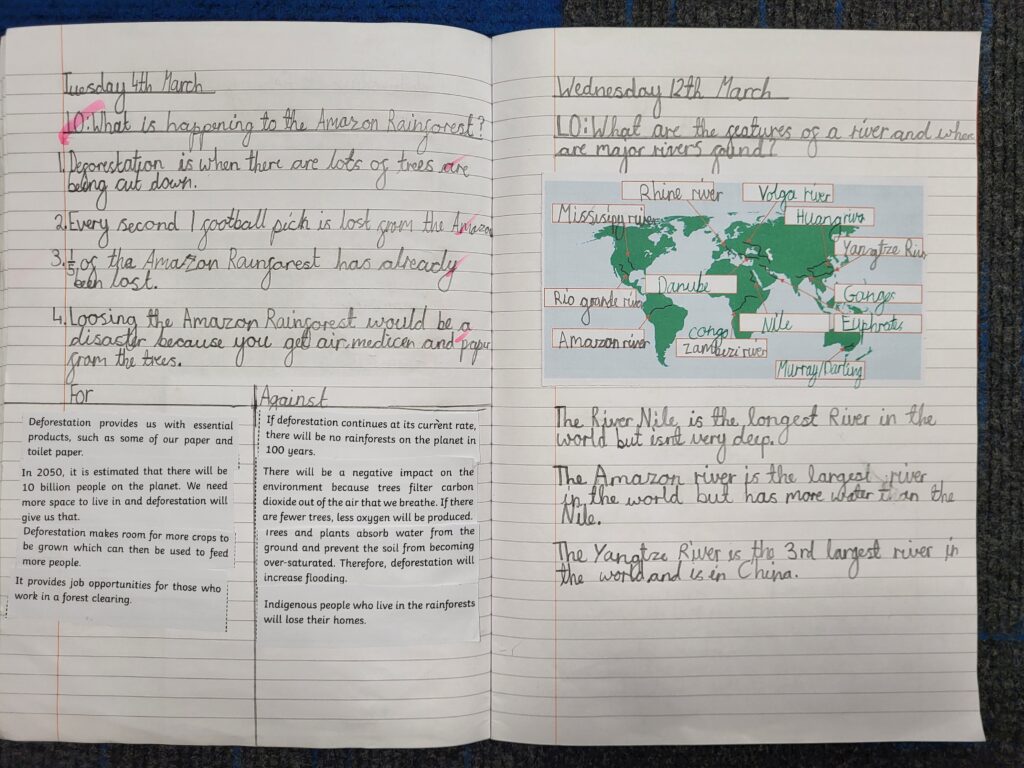 Tuesday 4th March
LO: What is happening to the Amazon Rainforest?
1. Deforestation is when there are lots of trees are
being cut down.
2. Every second 1 football pick is lost from the Amazon
3. 1/5 of the Amazon Rainforest has already
been lost.
4. Loosing the Amazon Rainforest would be a
disaster because you get air, medicen and papur
from the trees.
For
Against
Deforestation provides us with essential
products, such as some of our paper and
toilet paper.
In 2050, it is estimated that there will be
10 billion people on the planet. We need
more space to live in and deforestation will
give us that.
Deforestation makes room for more crops to
be grown which can then be used to feed
more people.
It provides job opportunities for those who
work in a forest clearing.
If deforestation continues at its current rate,
there will be no rainforests on the planet in
100 years.
There will be a negative impact on the
environment because trees filter carbon
dioxide out of the air that we breathe. If there
are fewer trees, less oxygen will be produced.
Trees and plants absorb water from the
ground and prevent the soil from becoming
over-saturated. Therefore, deforestation will
increase flooding.
Indigenous people who live in the rainforests
will lose their homes.
Wednesday 12th March
LO: What are the features of a river and where
are major rivers found?
Rhine river
Volga river
Missisipy river
Huang river
Yangtze Riv
Danube
Ganges
Rio grande river
Nile
Euphrates
Amazon river
congo
zambezi river
Murray/Darling
The River Nile is the longest River in the
world but isnt very deep.
The Amazon river is the largest river
in the world but has more water than the
Nile.
The Yangtze River is the 3rd largest river in
the world and is in China.